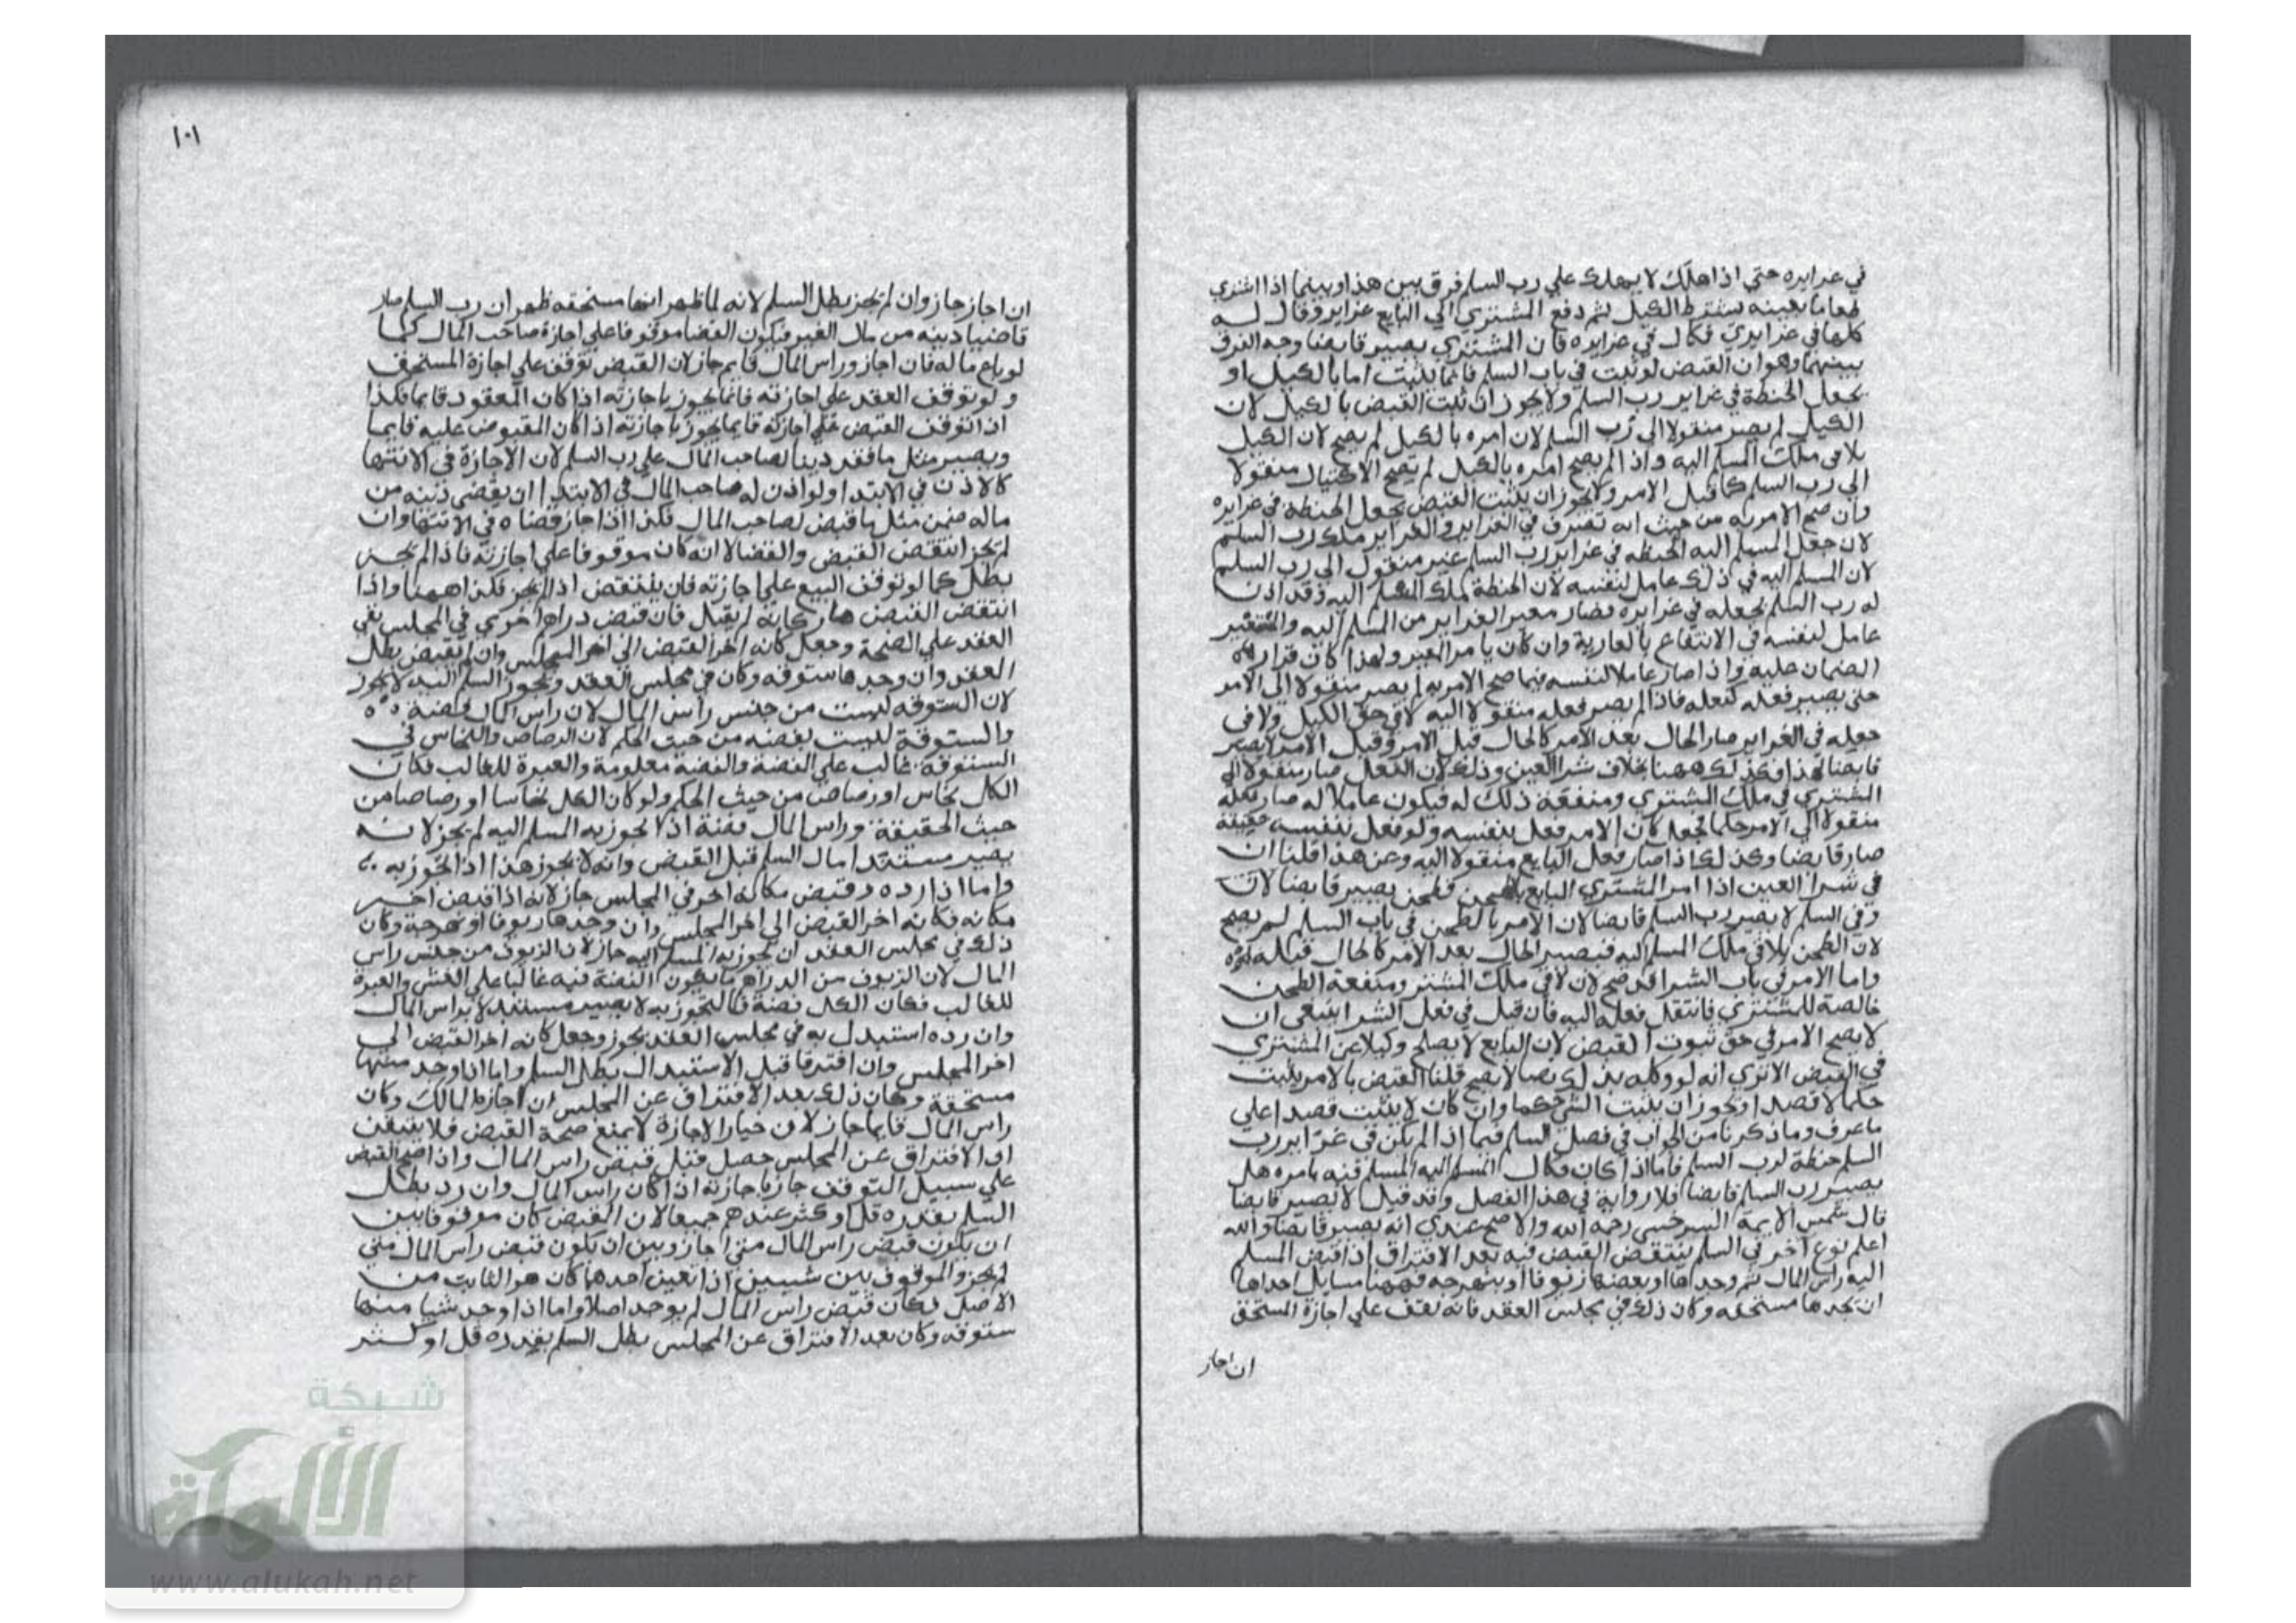 في غرايره حتى اذا هلك لا يهلك علي رب السلم فرق بين هذا وبينما اذا اشتري
طعاما بعينه بشرط الكيل ثم دفع المشتري الي البايع غراير وقال له
كلها في غرايري فكال في غرايره فان المشتري يصير قابضا وجه الفرق
بينهما وهو ان القبض لو ثبت في باب السلم فانما يثبت اما بالكيل او
بجعل الحنطة في غراير رب السلم ولا يجوز ان يثبت القبض بالكيل لان
الكيل لم يصير منقولا الى رب السلم لان امره بالكيل لم يصح لان الكيل
يلاقي ملك المسلم اليه واذا لم يصح امره بالكيل لم تصح الاكتيال منقولا
الى رب السلم كما قبل الامر ولا يجوز ان يثبت القبض بجعل الحنطة في غرايره
وان صح الامر به من حيث انه تصرف في الغراير والغراير ملك رب السلم
لان جعل المسلم اليه الحنطه في غراير رب السلم غير منقول الى رب السلم
لان المسلم اليه في ذلك عامل لنفسه لان الحنطة ملك المسلم اليه وقد اذن
له رب السلم بجعله في غرايره فصار معير الغراير من المسلم اليه والمستعير
عامل لنفسه في الانتفاع بالعارية وان كان بامر المعير ولهذا كان قرار
الضمان عليه واذا صار عاملا لنفسه فيما صح الامر به لم يصير منقولا الى الامر
حتى يصير فعله كفعله فاذا لم يصر فعله منقولا اليه لا في حق الكيل ولا في
جعله في الغراير صار الحال بعد الامر كالحال قبل الامر وقبل الامر لا يصير
قابضا لهذا فكذلك ههنا بخلاف شرا العين وذلك لان الفعل صار منقولا الى
المشتري في ملك المشتري ومنفعة ذلك له فيكون عاملا له صار فعله
منقولا الى الامر حكما فجعل كان الامر فعل بنفسه ولو فعل بنفسه حقيقة
صار قابضا وكذلك اذا صار فعل البايع منقولا اليه وعن هذا قلنا ان
في شرا العين اذا امر المشتري البايع بالطحن فطحن يصير قابضا لان
وفي السلم لا يصير رب السلم قابضا لان الامر بالطحن في باب السلم لم يصح
لان الطحن يلاقي ملك المسلم اليه فيصير الحال بعد الامر كالحال قبله
واما الامر في باب الشرا قد صح لان لاقى ملك المشتر ومنفعة الطحن
خالصة للمشتري فانتقل فعله اليه فان قيل في فعل الشرا ينبغي ان
لا يصح الامر في حق ثبوت القبض لان البايع لا يصلح وكيلا عن المشتري
في القبض الا تري انه لو وكله بذلك نصا لا يصح قلنا القبض بالامر يثبت
حكما لا قصدا ويجوز ان يثبت الشي حكما وان كان لا يثبت قصدا علي
ما عرف وما ذكرنا من الجواب في فصل السلم فيما اذا لم يكن في غراير رب
السلم حنطة لرب السلم فاما اذا كان فكال المسلم اليه المسلم فيه بامره هل
يصير رب السلم قابضا فلا رواية في هذا الفصل وقد قيل لا يصير قابضا
قال شمس الايمة السرخسي رحمه الله والاصح عندي انه يصير قابضا والله
اعلم نوع آخر في السلم ينتقض القبض فيه بعد الافتراق اذا قبض المسلم
اليه راس المال ثم وجدها او بعضها زيوفا او بنهرجه فههنا مسايل احداها
ان يجدها مستحقه وكان ذلك في مجلس العقد فانه يقف علي اجازة المستحق
ان اجاز
١٠١
ان اجاز جاز وان لم يجز بطل السلم لانه لما ظهر انها مستحقه ظهر ان رب السلم صار
قاضيا دينه من مال الغير فيكون القضا موقوفا علي اجازة صاحب المال كما
لو باع ماله فان اجاز وراس المال قايم جاز لان القبض توقف علي اجازة المستحق
ولو توقف العقد علي اجازته فانما يجوز باجازته اذا كان المعقود قايما فكذا
اذا توقف القبض علي اجازته فانما يجوز باجازته اذا كان المقبوض عليه قايما
ويصير مثل ما فقد دينا لصاحب المال علي رب السلم لان الاجازة في الانتها
كالاذن في الابتدا ولو اذن له صاحب المال في الابتدا ان يقضى دينه من
ماله ضمن مثل ما قبض لصاحب المال فكذا اذا اجاز قضاه في الانتها وان
لم يجز انتقض القبض والقضا لانه كان موقوفا علي اجازته فاذا لم يجز
بطل كما لو توقف البيع علي اجازته فان ينتقض اذا لم يجز فكذا ههنا واذا
انتقض القبض صار كانه لم يقبل فان قبض دراهم اخري في المجلس بقي
العقد علي الصحة وجعل كانه اخر القبض الي اخر المجلس وان لم يقبض بطل
العقد وان وجدها ستوقه وكان في مجلس العقد وتجوز المسلم اليه لا يجوز
لان الستوقه ليست من جنس راس المال لان راس المال فضة
والستوقة ليست بفضه من حيث الحكم لان الرصاص والنحاس في
الستوقة غالب علي الفضة والفضة معلومة والعبرة للغالب فكان
الكل نحاس او رصاص من حيث الحكم ولو كان الكل نحاسا او رصاصا من
حيث الحقيقة وراس المال فضة اذا تجوز به المسلم اليه لم يجز لانه
يصير مستبدلا مال السلم قبل القبض وانه لا يجوز هذا اذا تجوز به
واما اذا رده وقبض مكانه اخر في المجلس جاز لانه اذا قبض اخر
مكانه فكانه اخر القبض الي اخر المجلس وان وجدها زيوفا او نبهرجة وكان
ذلك في مجلس العقد ان تجوز به المسلم اليه جاز لان الزيوف من جنس راس
المال لان الزيوف من الدراهم ما يكون الفضة فيه غالبا علي الغش والعبرة
للغالب فكان الكل فضة فالتجوز به لا يصير مستبدلا براس المال
وان رده استبدل به في مجلس العقد يجوز وجعل كانه اخر القبض الي
اخر المجلس وان افترقا قبل الاستبدال بطل السلم واما اذا وجد منها
مستحقة وكان ذلك بعد الافتراق عن المجلس ان اجازه المالك وكان
راس المال قايما جاز لان خيار الاجازة لا يمنع صحة القبض فلا يتيقن
ان الافتراق عن المجلس حصل قبل قبض راس المال واذا صح القبض
علي سبيل التوقف جاز باجازته اذا كان راس المال وان رد بطل
السلم بقدره قل او كثر عندهم جميعا لان القبض كان موقوفا بين
ان يكون قبض راس المال متى اجاز وبين ان يكون قبض راس المال متي
لم يجز والموقوف بين شيين اذا تعين احدهما كان هو الثابت من
الاصل فكان قبض راس المال لم يوجد اصلا واما اذا وجد شيا منها
ستوقه وكان بعد الافتراق عن المجلس بطل السلم بقدره قل او كثر
شبكة
الألوكة
www.alukah.net